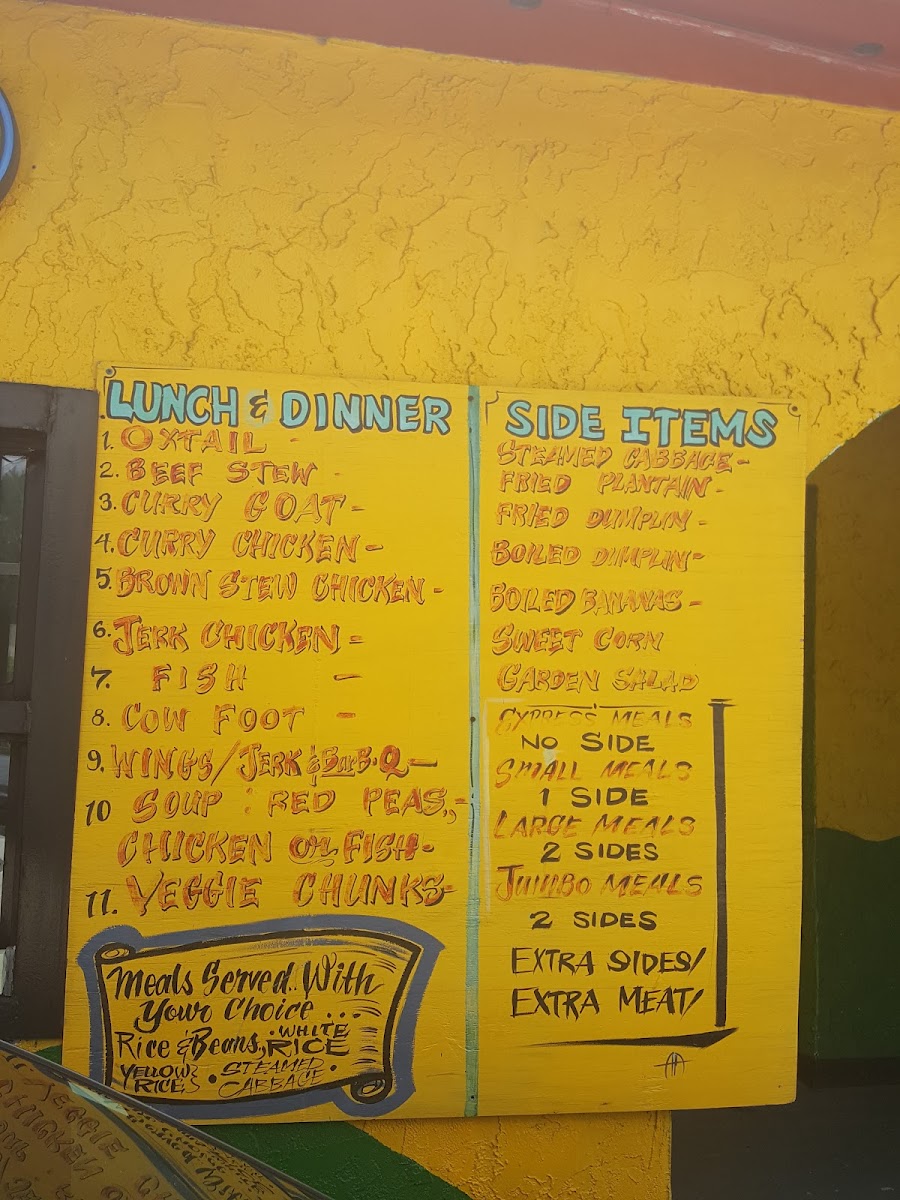 LUNCH & DINNER
1. OXTAIL -
2. BEEF STEW -
3. CURRY GOAT -
4. CURRY CHICKEN -
5. BROWN STEW CHICKEN -
6. JERK CHICKEN =
7. FISH -
8. COW FOOT -
9. WINGS/JERK & BAR-B-Q -
10 SOUP: RED PEAS., -
CHICKEN OR FISH -
11. VEGGIE CHUNKS -
Meals Served.. With
Your Choice ...
Rice & Beans., WHITE RICE
YELLOW RICE • STEAMED CABBAGE •
SIDE ITEMS
STEAMED CABBAGE -
FRIED PLANTAIN -
FRIED DUMPLIN -
BOILED DUMPLIN -
BOILED BANANAS -
SWEET CORN
GARDEN SALAD
EXPRESS MEALS
NO SIDE
SMALL MEALS
1 SIDE
LARGE MEALS
2 SIDES
JUMBO MEALS
2 SIDES
EXTRA SIDES/
EXTRA MEAT/